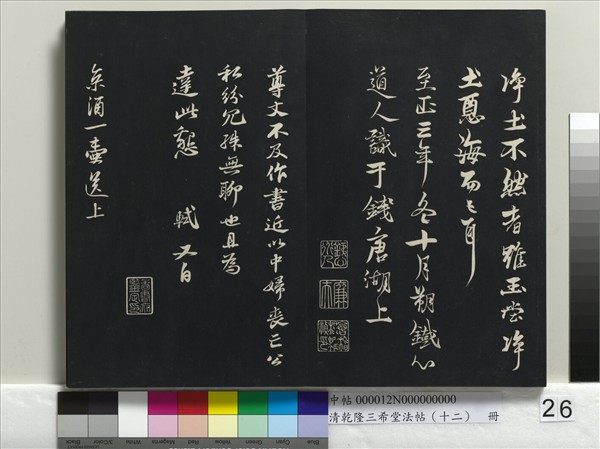 净土不然者雖玉堂净
土惡海而已耳
至正三年冬十月朔鐵心
道人識于錢唐湖上
尊丈不及作書近以中婦喪亡公
私紛冗殊無聊也且為
達此懇 軾又白
京酒一壷送上
中帖 000012N000000000
清乾隆三希堂法帖(十二) 冊
26
Black
3/Color
Magenta
Red
Yellow
Green
Cyan
Blue